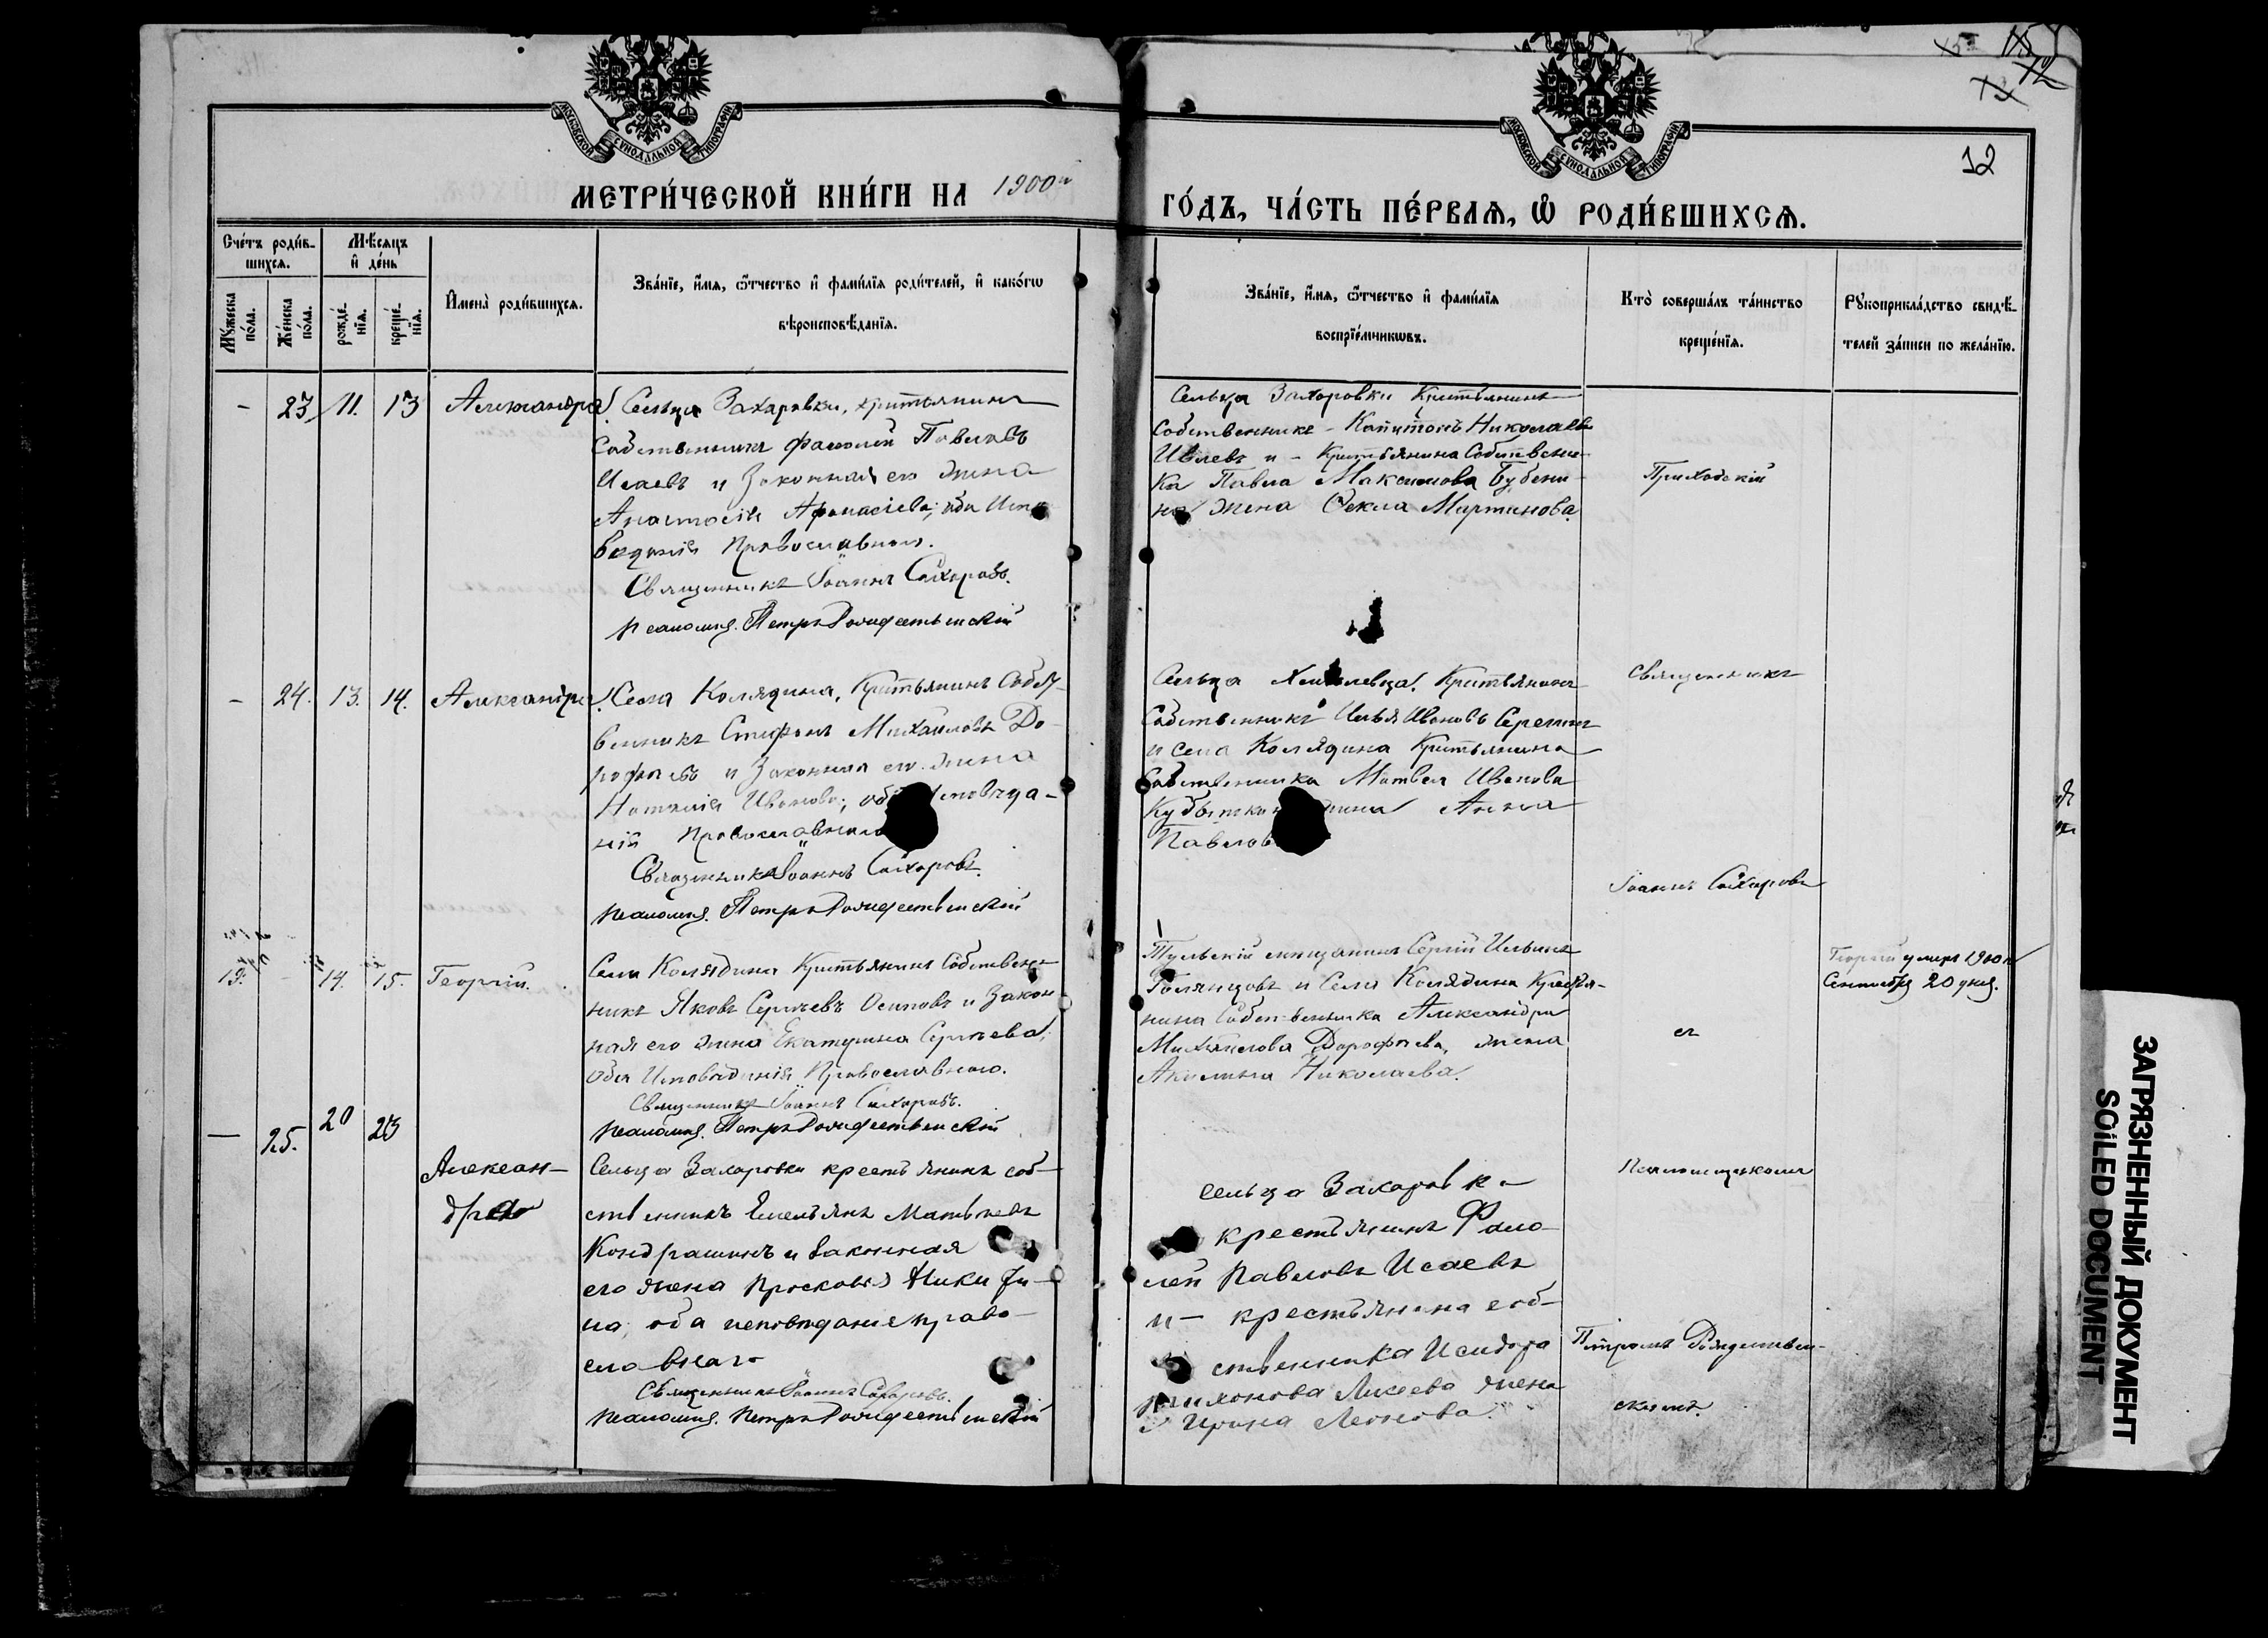 12
МОСКОВСКОЙ СѴНОДАЛЬНОЙ ТИПОГРАФІИ
МОСКОВСКОЙ СѴНОДАЛЬНОЙ ТИПОГРАФІИ
МЕТРИ́ЧЕСКОЙ КНИ́ГИ НА 1900й
ГО́ДЪ, ЧА́СТЬ ПЕ́РВАѦ, Ѡ҆ РОДИ́ВШИХСѦ.
Сче́тъ роди́в-
шихсѧ.
Мѣ́сѧцъ
и҆ де́нь
Мꙋ́жеска по́ла.
Же́нска по́ла.
рожде́-
нїѧ.
креще́-
нїѧ.
И҆мена̀ роди́вшихсѧ.
Зва́нїе, и҆́мѧ, ѻ҆́тчество и҆ фами́лїѧ роди́телей, и҆ како́гѡ
вѣроисповѣ́данїѧ.
Зва́нїе, и҆́мѧ, ѻ҆́тчество и҆ фами́лїѧ
воспрїе́мникѡвъ.
Кто̀ соверша́лъ та́инство
креще́нїѧ.
Рꙋкоприкла́дство свидѣ́-
телей за́писи по жела́нїю.
- 23 11. 13 Александра
Сельца Захаровки, крестьянинъ
Собственникъ Фалолей Павловъ
Исаевъ и Законная его жена
Анастасія Афанасіева; оба Испо
веданія Православнаго.
Священникъ Іоаннъ Сахаровъ.
Псаломщ. Петръ Рождественскій
Сельца Захаровки Крестьянинъ
Собственникъ - Капитонъ Николаевъ
Ивлевъ и - Крестьянина Собственни-
ка Павла Максимова
на жена Ѳекла Мартинова.
Приходскій
- 24. 13. 14. Александра
Села Колядина, Крестьянинъ Собст-
венникъ Стефанъ Михаиловъ До-
рофеевъ и Законная его жена
Наталія Иванова; об споведа-
ній Православнаго
Священникъ Іоаннъ Сахаровъ.
Псаломщ. Петръ Рождественскій
Сельца Крестьянинъ
Собственникъ Илья Ивановъ
и села Колядина Крестьянина
Собственника Матвея Иванова
жена Анна
Павлов
Священникъ
Іоаннъ Сахаровъ
19. - 14. 15. Георгій.
Села Колядина Крестьянинъ Собствен-
никъ Яковъ Сергѣевъ Осиповъ и Закон
ная его жена Екатерина Сергѣева;
оба Исповѣданія Православнаго.
Священникъ Іоаннъ Сахаровъ.
Псаломщ. Петръ Рождественскій
Тульскій мещанинъ Сергій Ильинъ
и Села Колядина Крестья-
нина Собственника Александра
Михайлова Дорофеева, жена
Акилина Николаева.
съ
Георгій умеръ 1900 г
Сентября 20 дня.
— 25. 20 23
Алексан-
дра
Сельца Захаровки крестьянинъ соб-
ственникъ Емельянъ Матвеевъ
Кондрашинъ и законная
его жена Просковія Никити-
на, оба исповедание право-
славнаго
Священникъ Іоаннъ Сахаровъ.
Псаломщ. Петръ Рождественскій
Сельца Захаровки
крестьянинъ Фало-
лей Павловъ Исаевъ
и - крестьянина соб-
ственника Исидора
Тихонова жена
Ирина Леонова.
Псаломщикомъ
Петромъ Рождествен-
скимъ.
ЗАГРЯЗНЕННЫЙ ДОКУМЕНТ
SOILED DOCUMENT